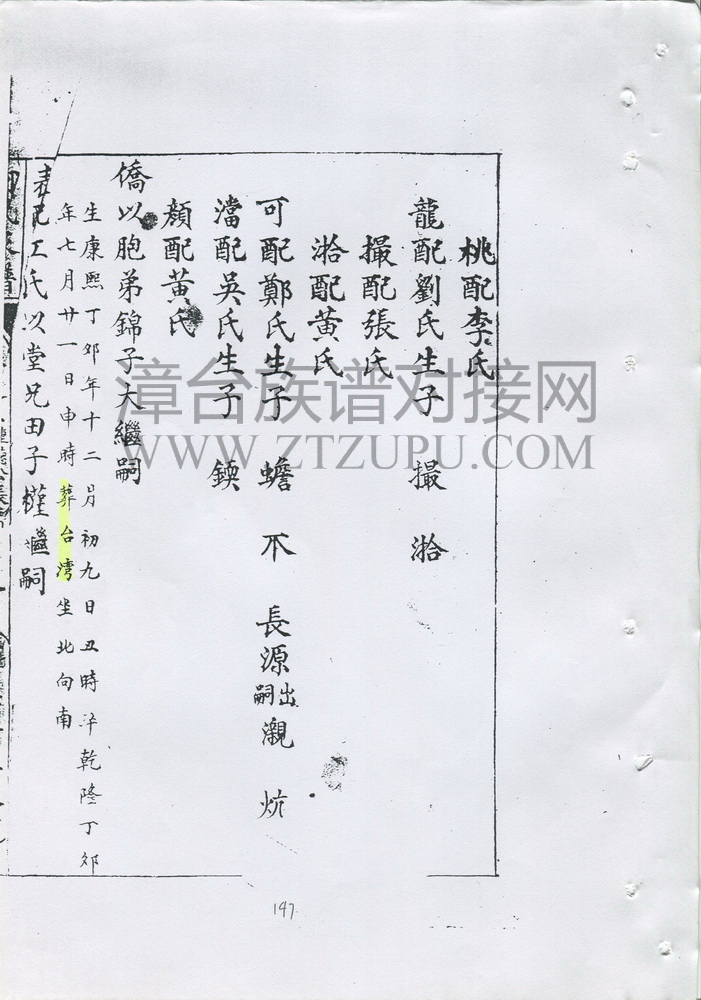 桃配李氏
龍配劉氏生子 撮 湁
撮配張氏
湁配黃氏
可配鄭氏生子 蟾 不 長源出嗣 灍 炕
澢配吳氏生子 鍥
顏配黃氏
僑以胞弟錦子大繼嗣
生康熙丁郊年十二月初九日丑時卒乾隆丁郊
年七月廿一日申時葬台灣坐北向南
配王氏以堂兄田子權繼嗣
147
漳台族谱对接网
WWW.ZTZUPU.COM